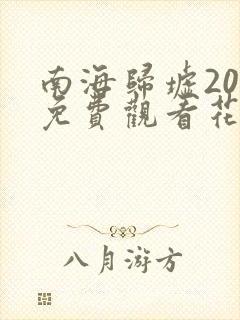 南海歸墟20
免費觀看花
八月游方